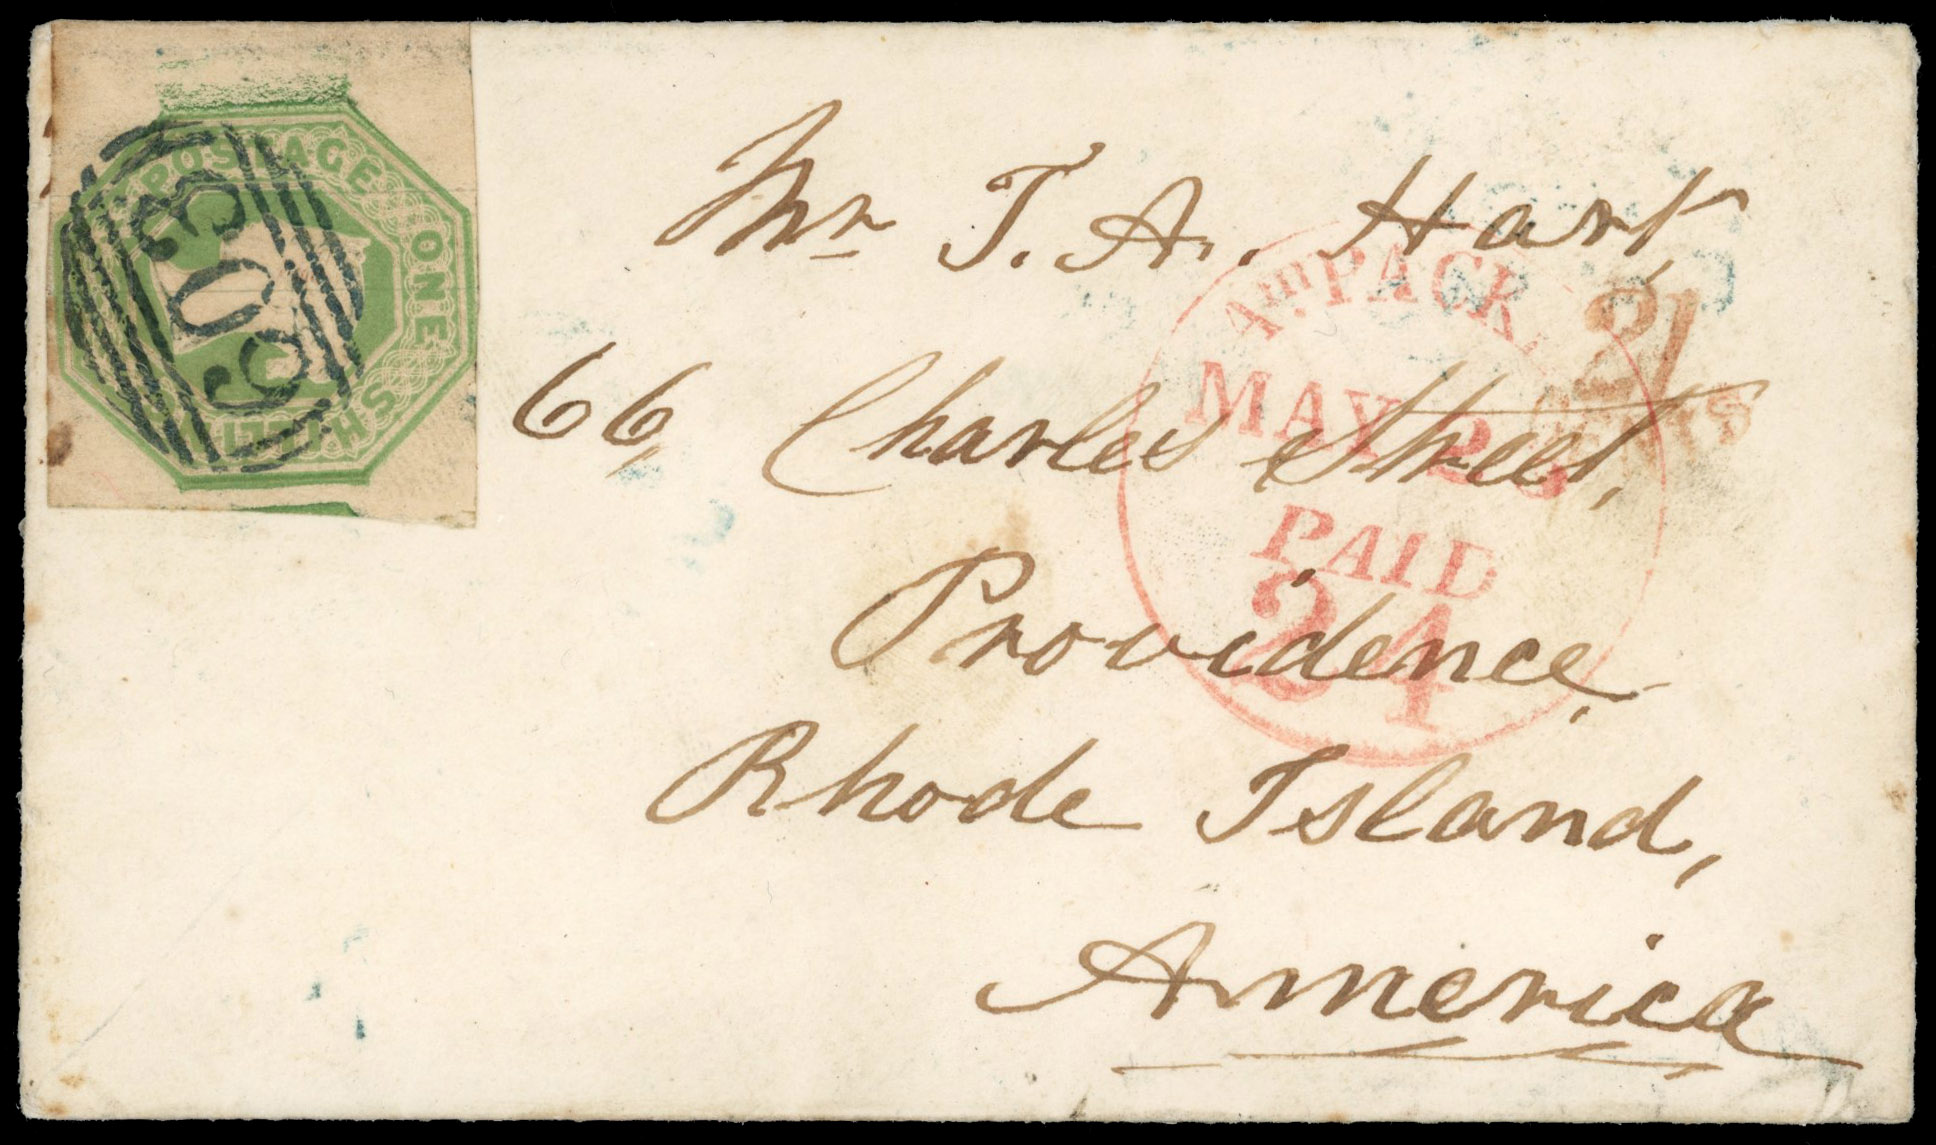 POSTAGE ONE SHILLING
603
Mr T. A. Hart,
66, Charles Street,
Providence,
Rhode Island,
America
Am. PACK
MAY
PAID
24
21
CENTS